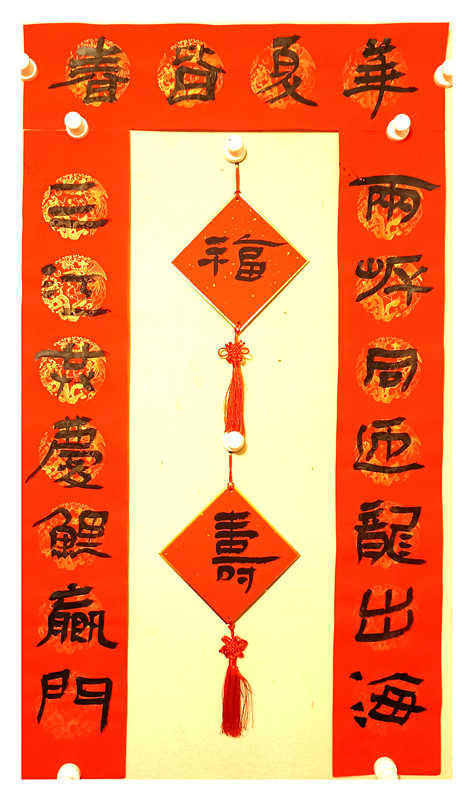 華夏皆春
兩岸同迎龍出海
三江共慶鯉贏門
福
壽